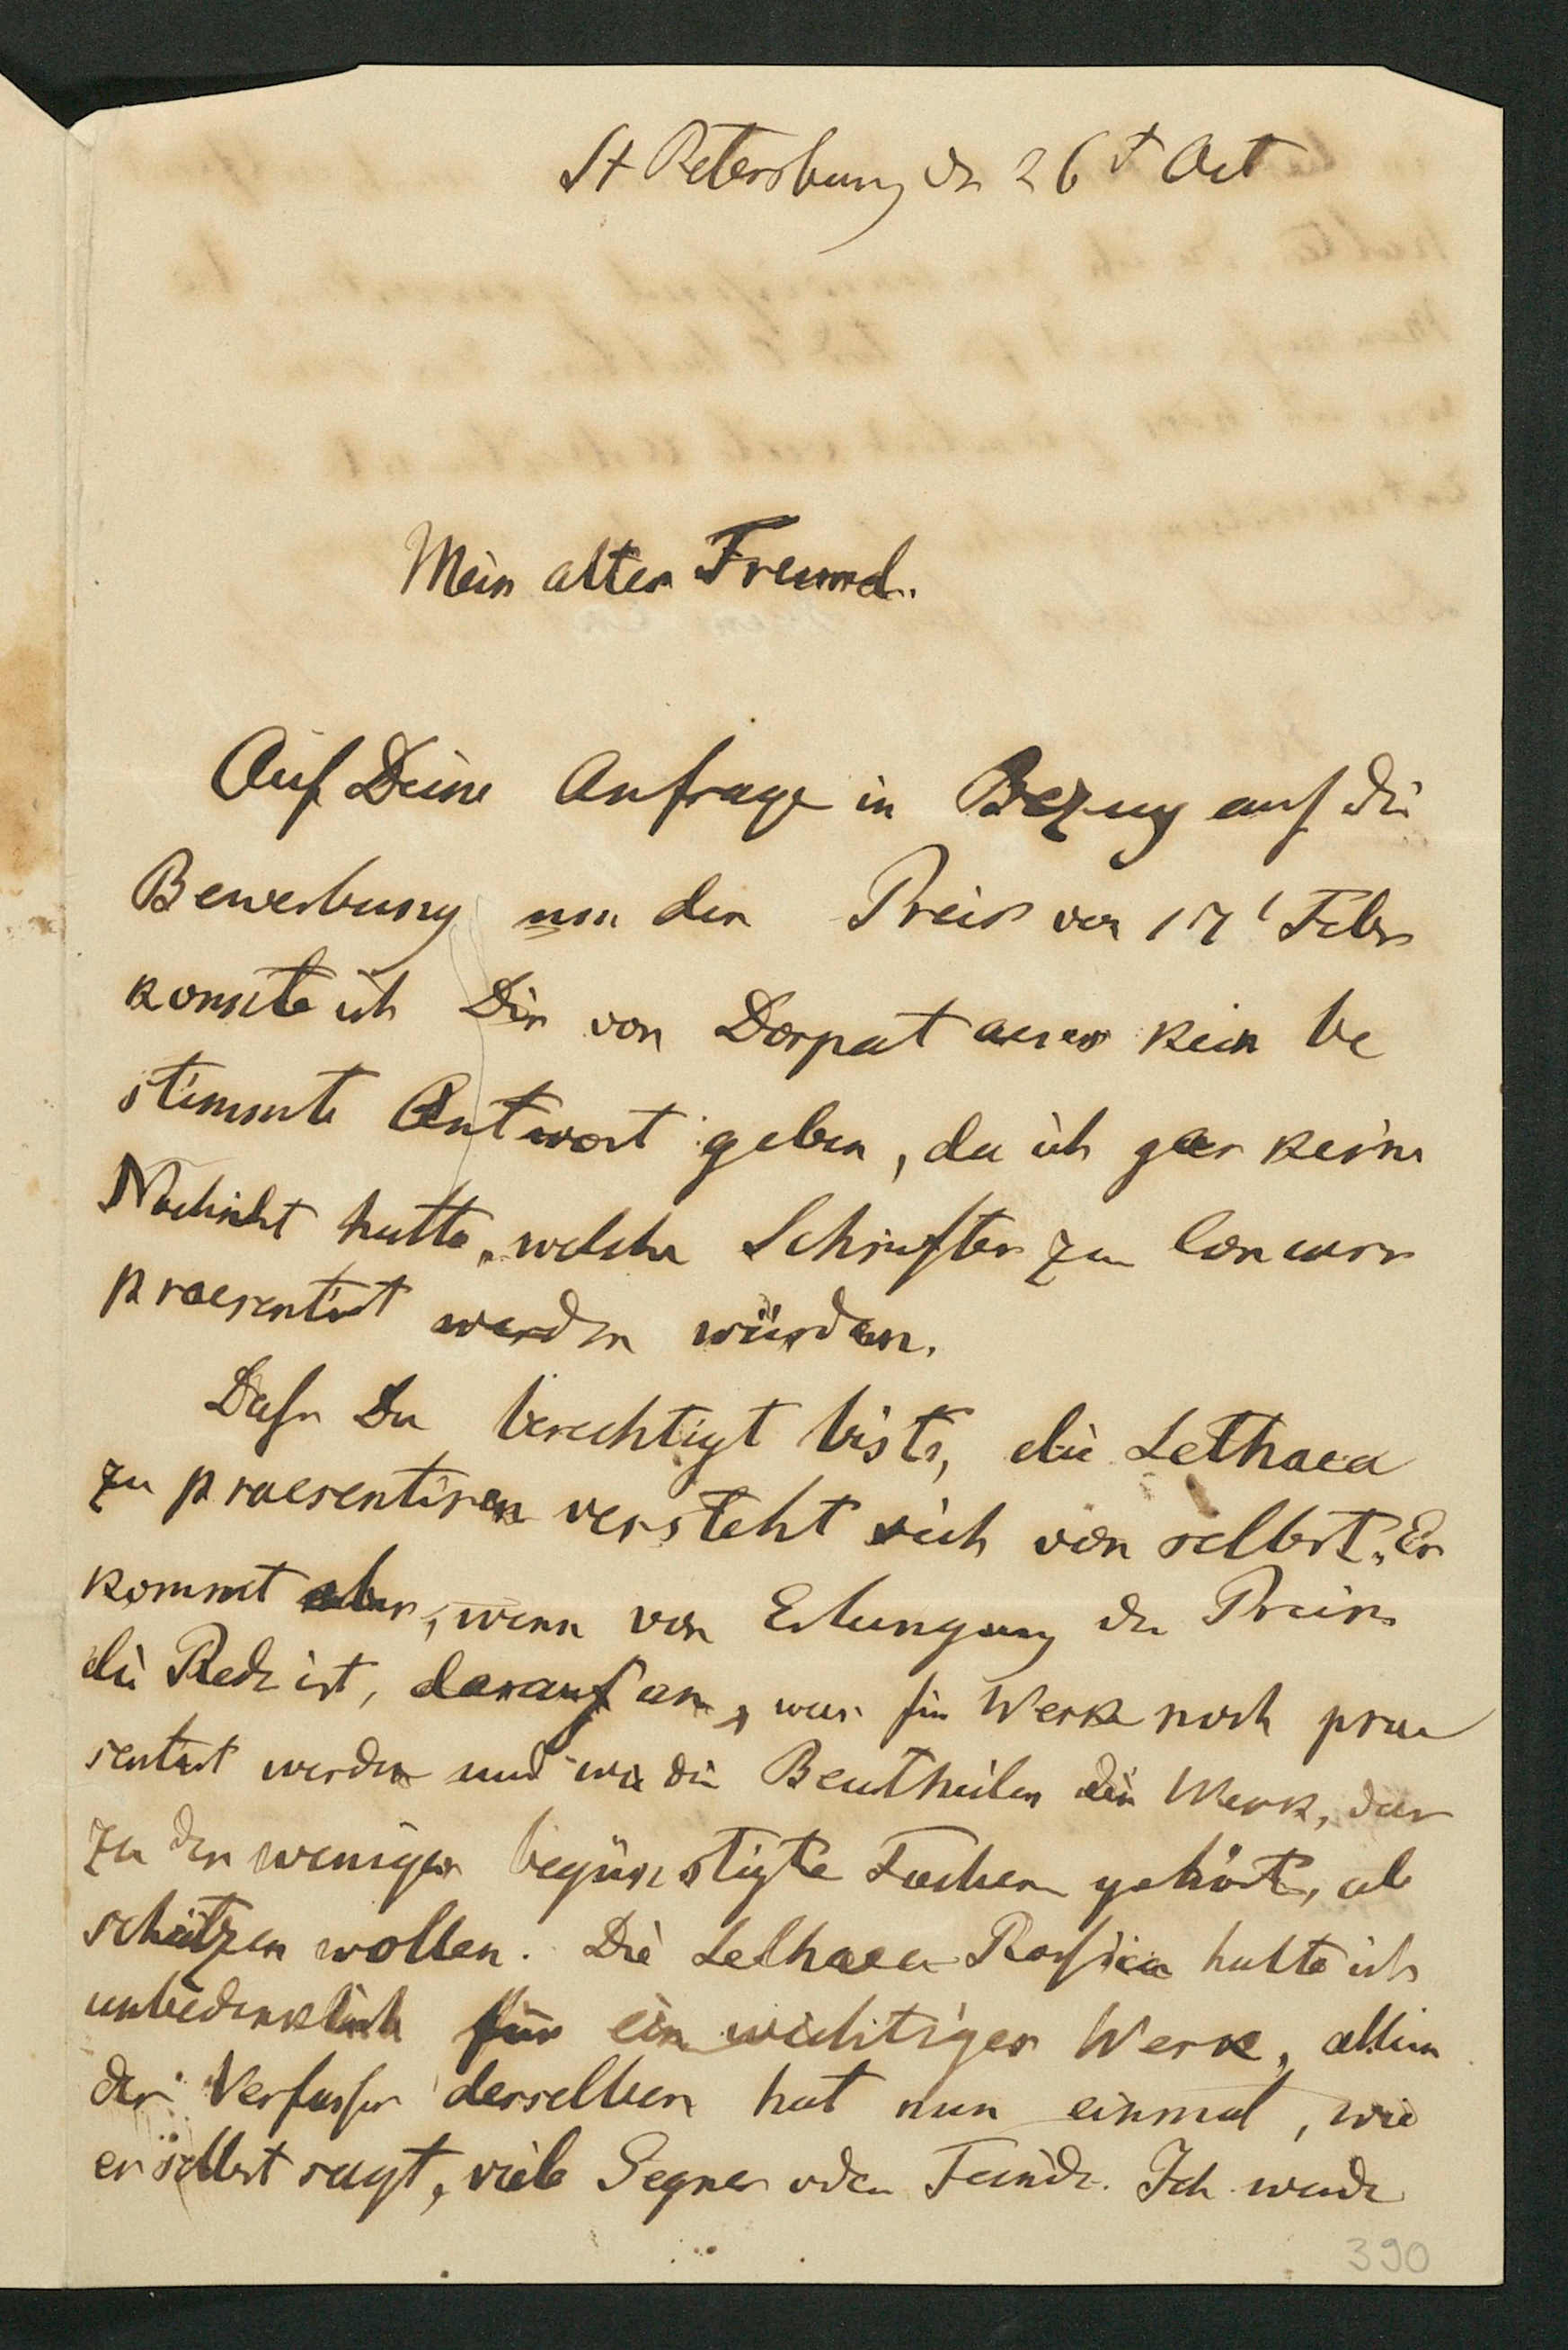 St Petersburg dn 26t Oct
Mein alter Freund.
Auf Deine Anfrage in Bezug auf die
Bewerbung um den Preis von 17t Febr
konnte ich Dir von Dorpat aus kein be
stimmte Antwort geben, da ich gar keine
Nachricht hatte, welche Schriften zum Concurs
praesentirt werden würden.
Dass Du berechtigt bist, die Lethaea
zu praesentiren versteht sich von selbst. Es
kommt aber, wenn von Erlangung des Preises
die Rede ist, darauf an, was für Werke noch prae
sentirt werden und wie die Beurtheiler ein Werk, das
zu den weniger begünstigte Fächern gehört, ab
schätzen wollen. Die Lethaea Rossica halte ich
unbedenklich für ein wichtiges Werk, allein
der Verfasser derselben hat nun einmal, wie
er selbst sagt, viele Gegner oder Feinde. Ich werde
390